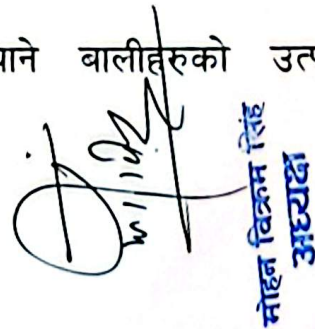 बालीहरुको
मोहन विक्रम सिंह
अध्यक्ष